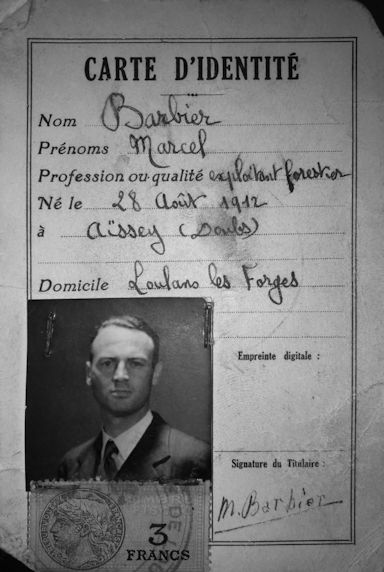 CARTE D'IDENTITÉ
Nom Barbier
Prénoms Marcel
Profession ou qualité exploitant forestier
Né le 28 Août 1912
à Aïssey (Doubs)
Domicile Loulans les Forges
Empreinte digitale :
Signature du Titulaire :
M. Barbier
3
FRANCS